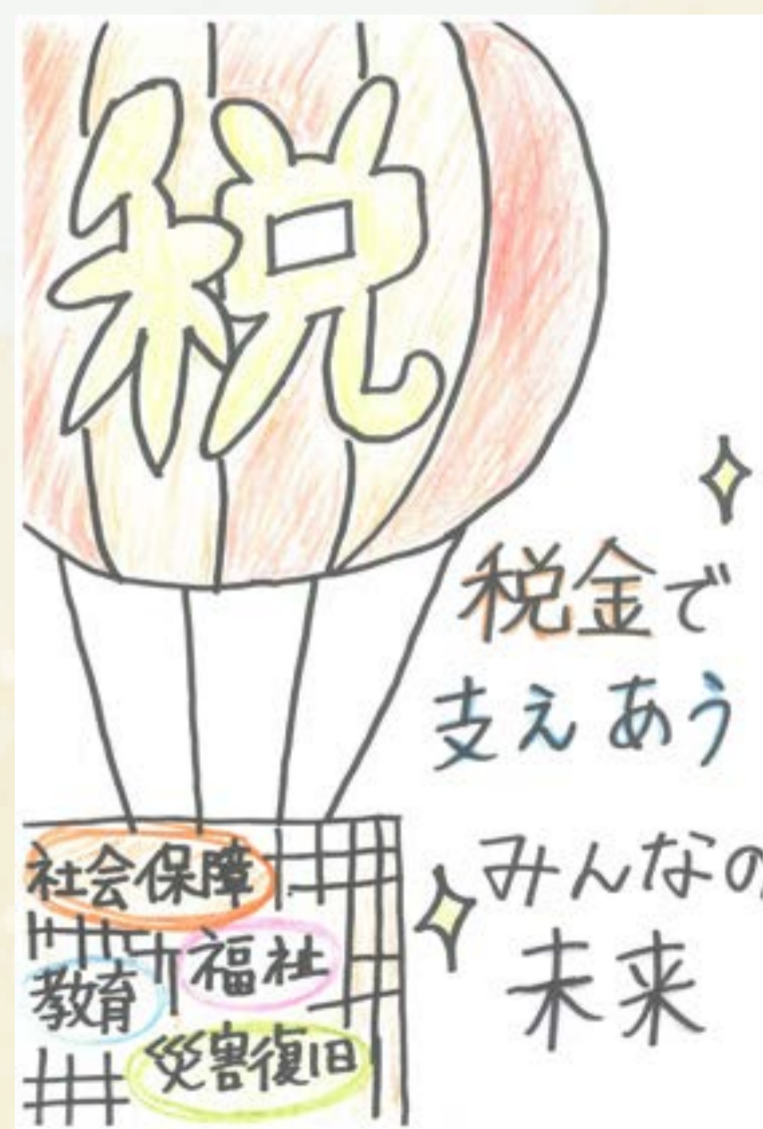 税
税金で
支えあう
みんなの
未来
社会保障
福祉
教育
災害復旧